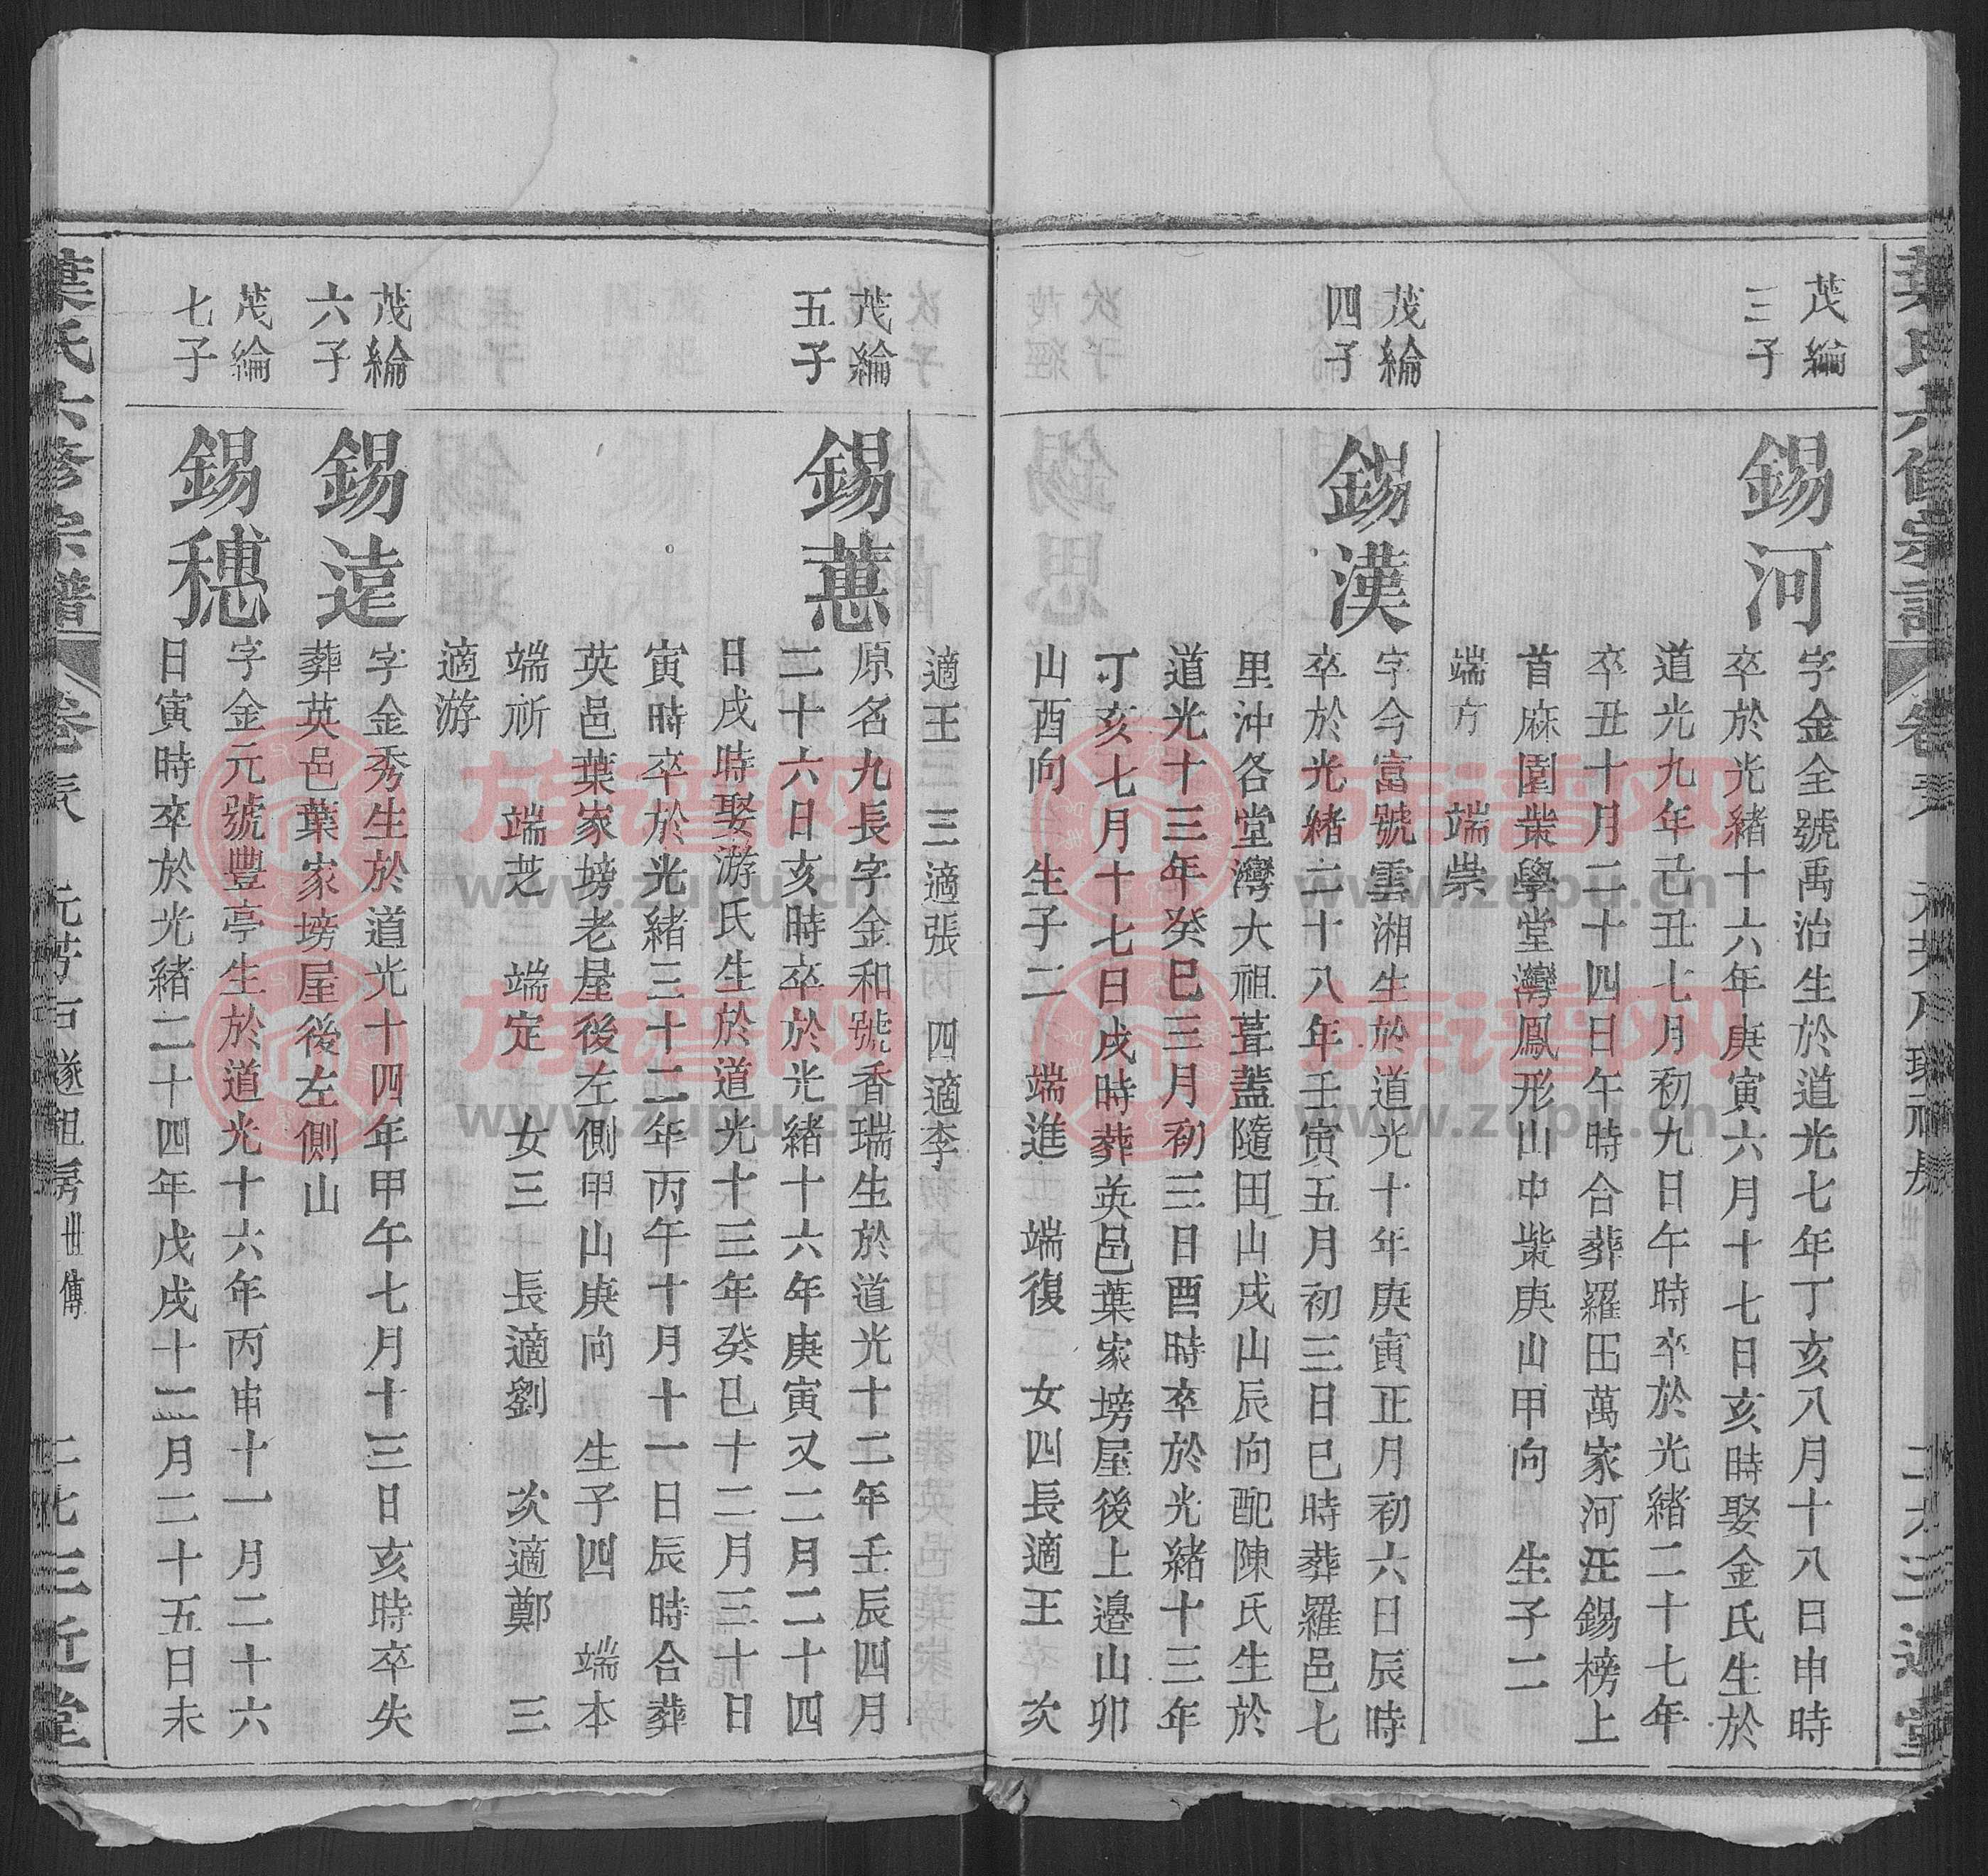 茂綸
三子
錫河
字金全號禹治生於道光七年丁亥八月十八日申時
卒於光緒十六年庚寅六月十七日亥時娶金氏生於
道光九年己丑七月初九日午時卒於光緒二十七年
辛丑十月二十四日午時合葬羅田萬家河汪錫榜上
首麻園業學堂灣鳳形山中業庚山甲向 生子二
端方 端崇
茂綸
四子
錫漢
字今富號雲湘生於道光十年庚寅正月初六日辰時
卒於光緒二十八年壬寅五月初三日巳時葬羅邑七
里沖各堂灣大祖葺蓋隨田山戌山辰向配陳氏生於
道光十三年癸巳三月初三日酉時卒於光緒十三年
丁亥七月十七日戌時葬英邑葉家塝屋後上邉山卯
山酉向 生子二 端進 端復 女四長適王 次
適王 三適張 四適李
茂綸
五子
錫蕙
原名九長字金和號香瑞生於道光十二年壬辰四月
二十六日亥時卒於光緒十六年庚寅又二月二十四
日戌時娶游氏生於道光十三年癸巳十二月三十日
寅時卒於光緒三十二年丙午十月十一日辰時合葬
英邑葉家塝老屋後左側甲山庚向 生子四 端本
端祈 端芝 端定 女三 長適劉 次適鄭 三
適游
茂綸
六子
錫逵
字金秀生於道光十四年甲午七月十三日亥時卒失
葬英邑葉家塝屋後左側山
茂綸
七子
錫穗
字金元號豐亭生於道光十六年丙申十一月二十六
日寅時卒於光緒二十四年戊戌十二月二十五日未
葉氏六修宗譜 卷 房 世傳 三近堂
族谱网
www.zupu.cn
族谱网
www.zupu.cn
族谱网
www.zupu.cn
族谱网
www.zupu.cn